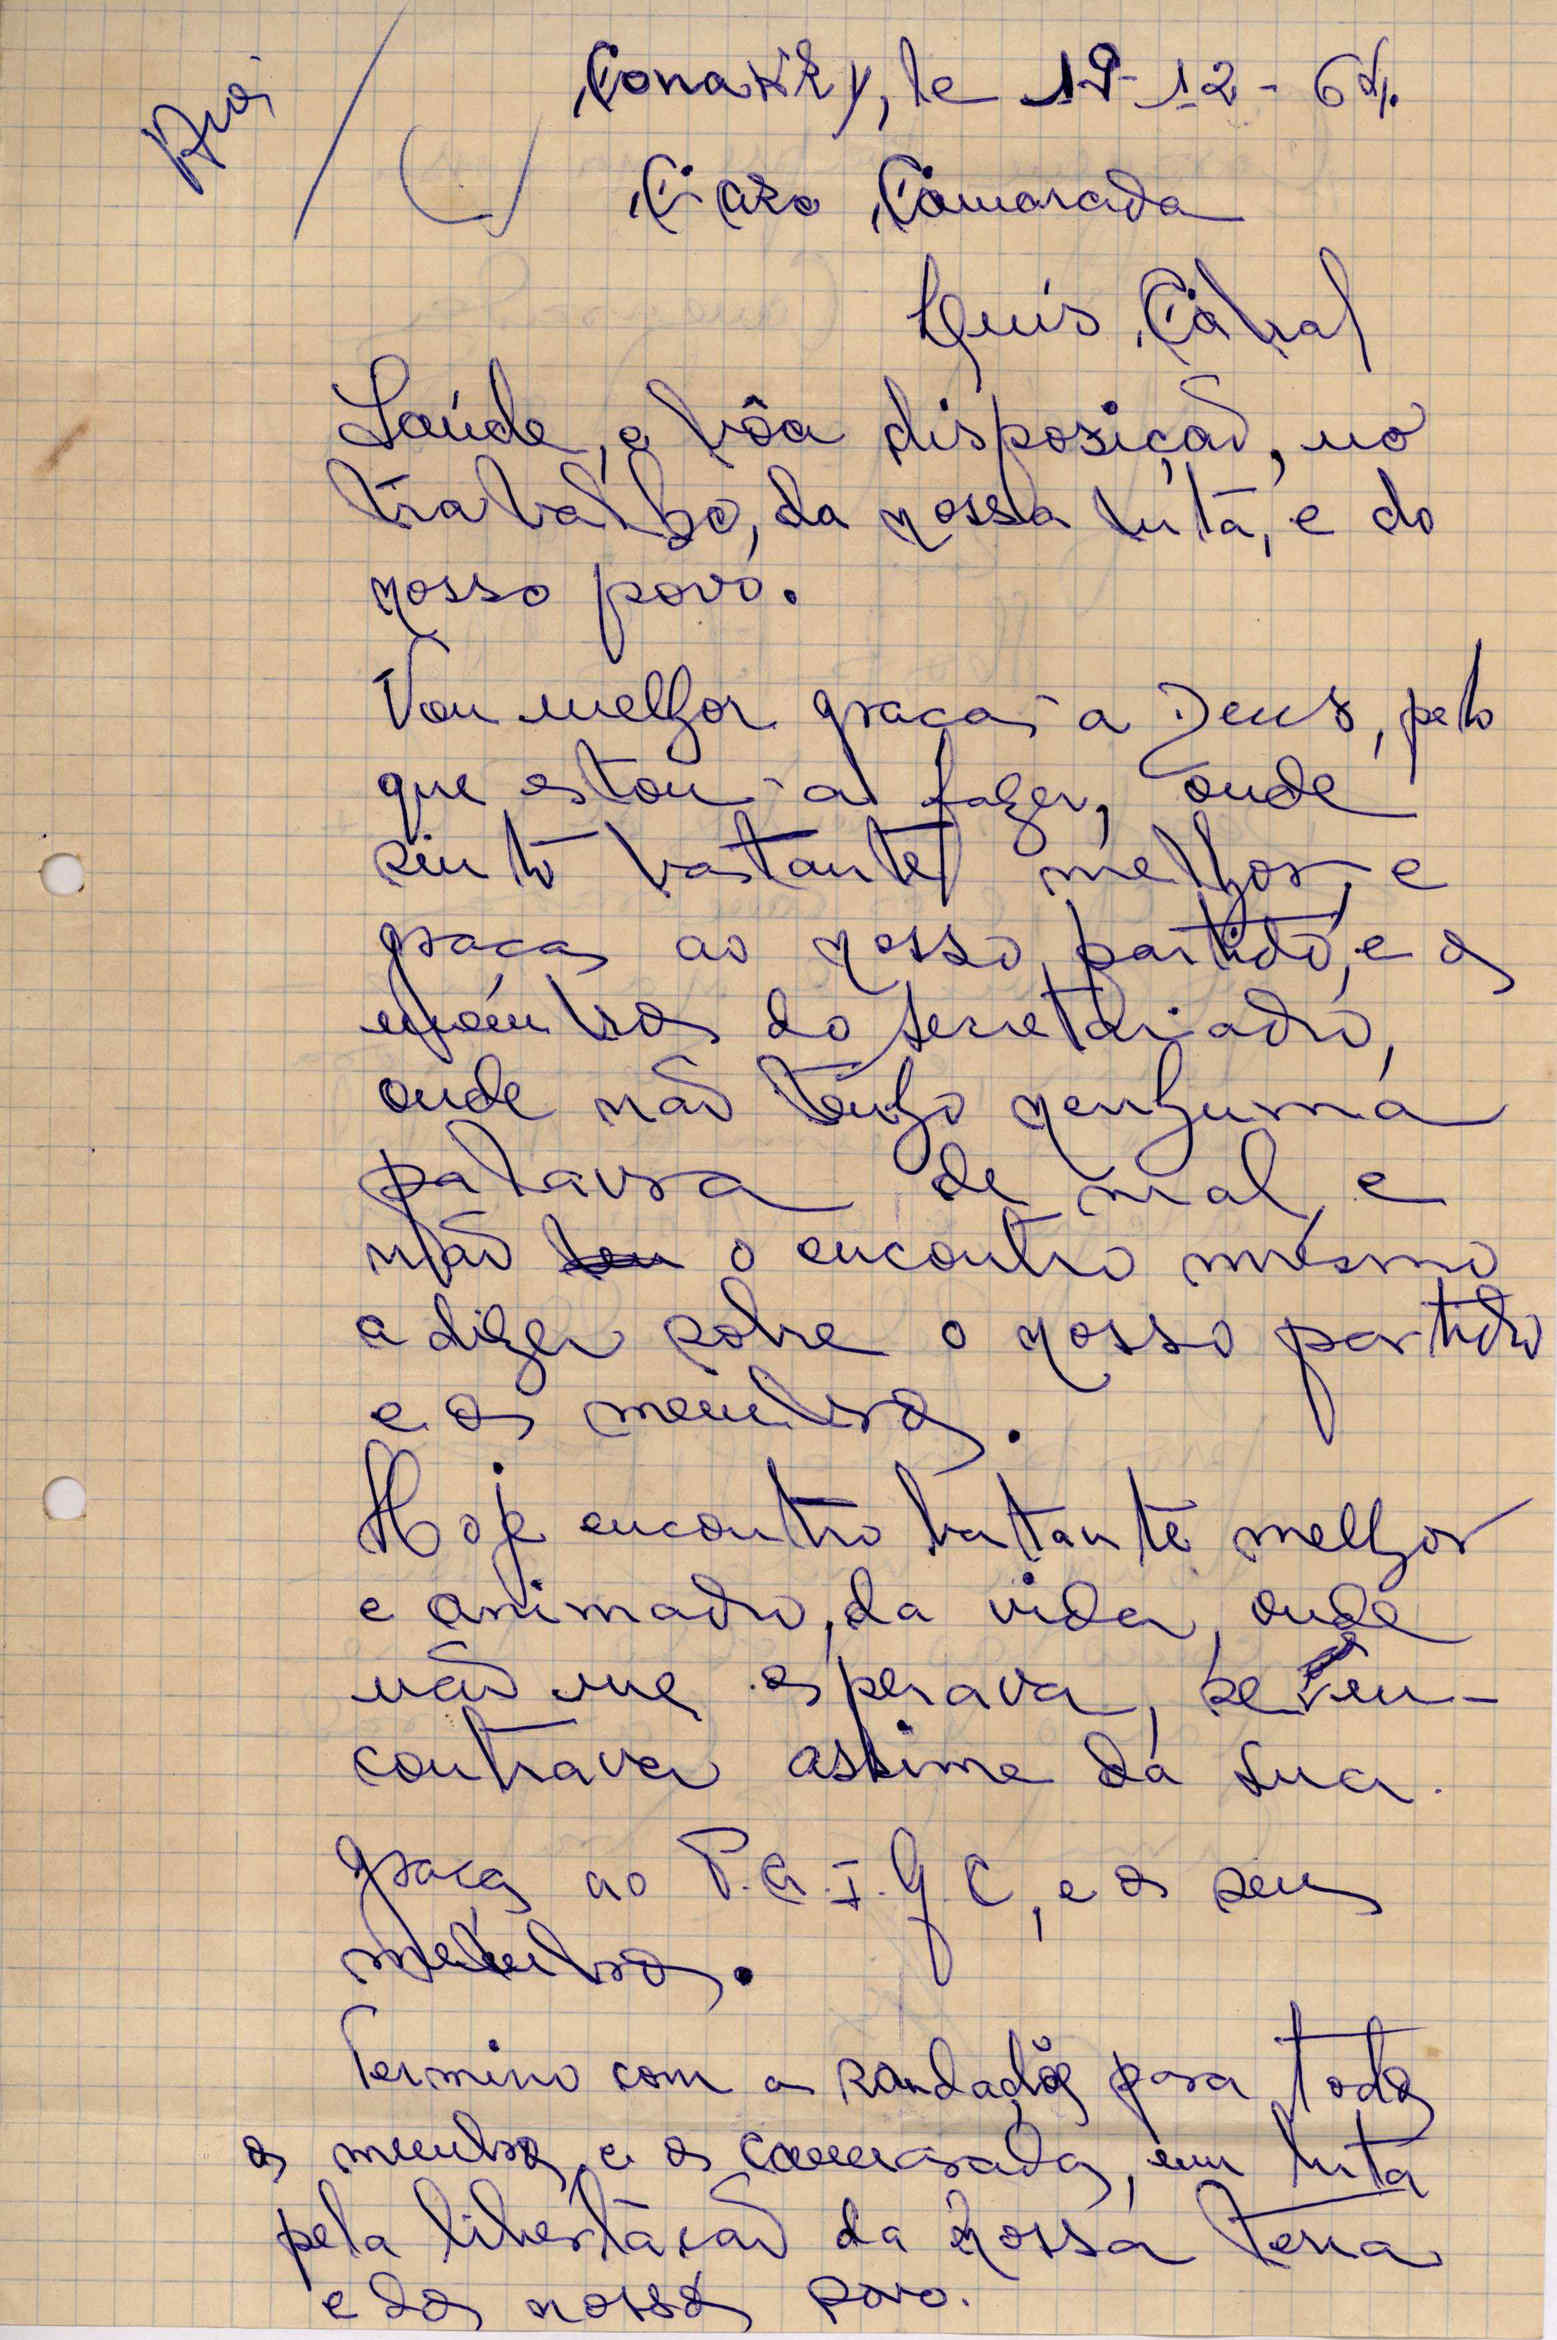 Conakry, le 19-12-64.
Caro Camarada
Luís Cabral
Saúde, e bôa disposição, no
trabalho, da nossa luta, e do
nosso povo.
Vou melhor graças a Deus, pelo
que estou a fazer, onde
sinto bastante melhor, e
graças ao nosso partido, e os
membros do secretariado,
onde não tenho nenhuma
palavra de mal, e
não o encontro mesmo
a dizer sobre o nosso partido
e os membros.
Hoje encontro bastante melhor
e animado, da vida, onde
não me esperava, se en-
contrava assime da sua
graças ao P.A.I.G.C, e os seus
membros.
Termino com as saudações para todos
os membros e os camaradas, em luta
pela libertação da nossa Terra
e dos nossos povo.